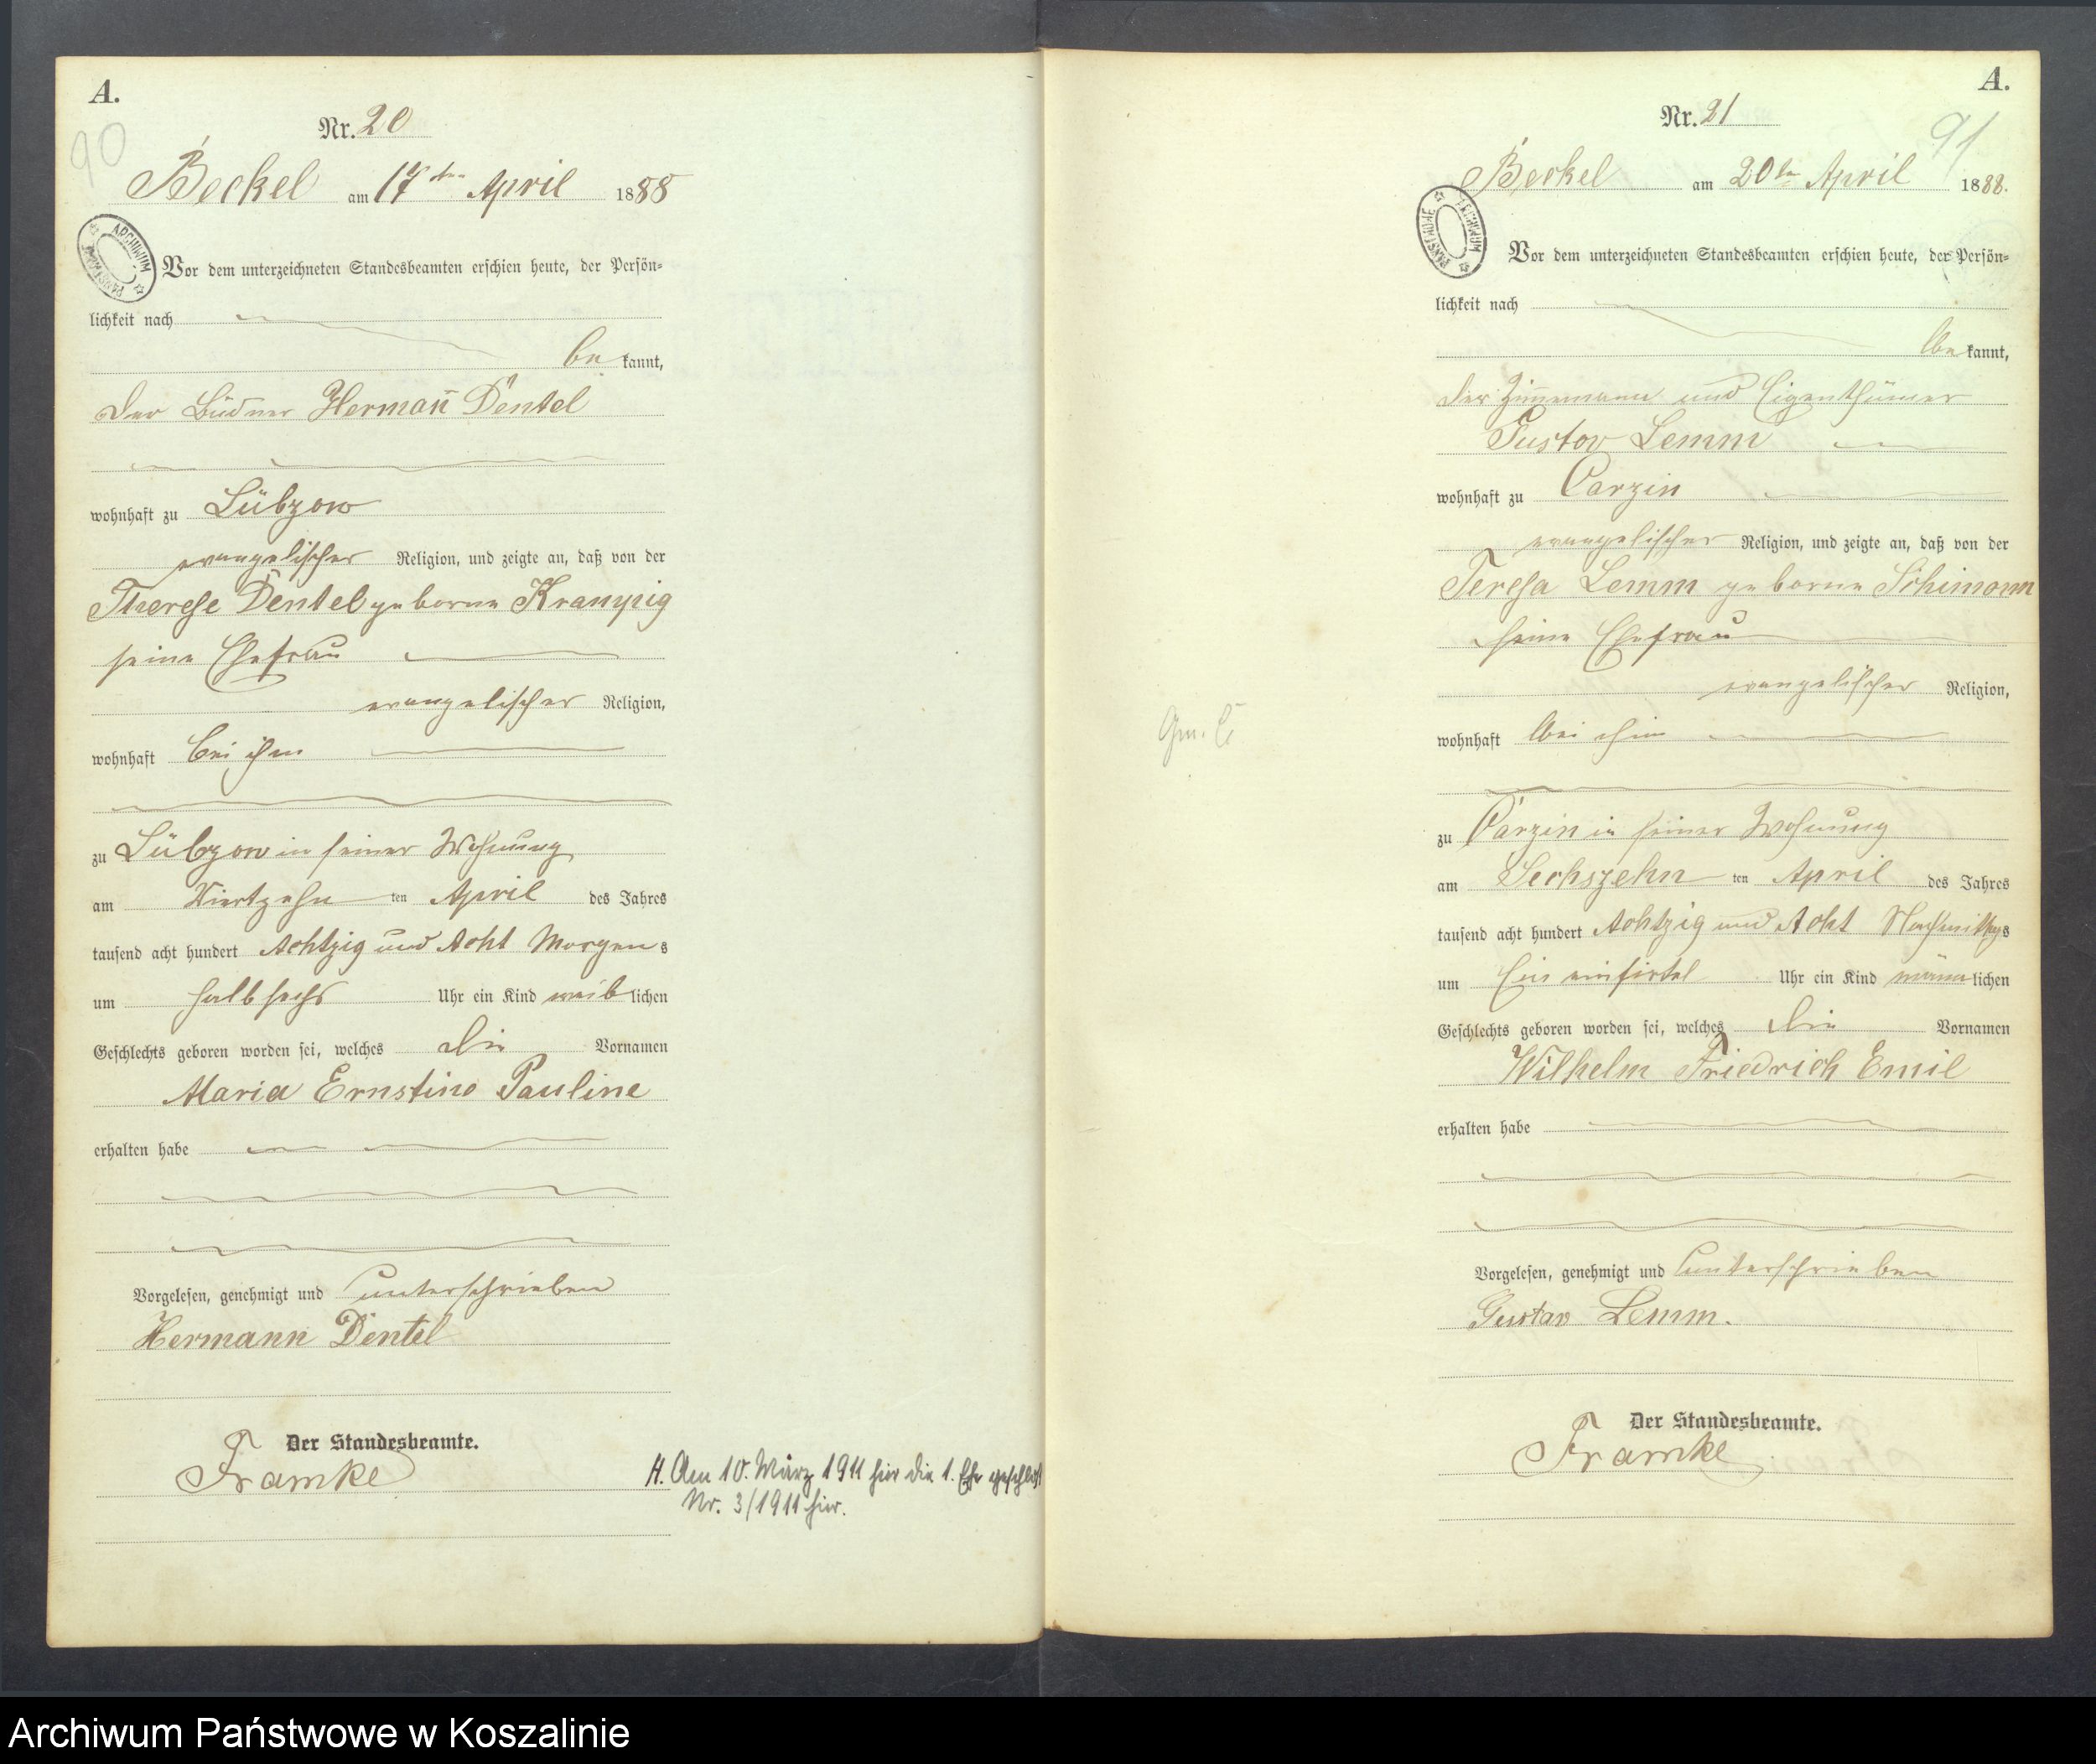 A.
90
Nr. 20
Beckel am 17ten April 1888
ARCHIWUM
Vor dem unterzeichneten Standesbeamten erschien heute, der Persön-
lichkeit nach
be kannt,
der Büdner Hermañ Dentel
wohnhaft zu Lübzow
evangelischer Religion, und zeigte an, daß von der
Therese Dentel geborne Krampig
seine Ehefrau
evangelischer Religion,
wohnhaft bei ihm
zu Lübzow in seiner Wohnung
am Viertzehn ten April des Jahres
tausend acht hundert Achtzig und Acht Morgens
um halb sechs Uhr ein Kind weib lichen
Geschlechts geboren worden sei, welches die Vornamen
Maria Ernstine Pauline
erhalten habe
Vorgelesen, genehmigt und unterschrieben
Hermann Dentel
Der Standesbeamte.
Framke
H. Am 10. März 1911 hier die 1. Ehe geschloß
Nr. 3/1911 hier.
A.
Nr. 21
91
Beckel am 20ten April 1888.
ARCHIWUM PAŃSTWOWE
Vor dem unterzeichneten Standesbeamten erschien heute, der Persön-
lichkeit nach
be kannt,
der Zim̅emann und Eigenthümer
Gustav Lemm
wohnhaft zu Carzin
evangelischer Religion, und zeigte an, daß von der
Teresa Lemm geborne Schimann
seine Ehefrau
evangelischer Religion,
wohnhaft bei ihm
zu Carzin in seiner Wohnung
am Sechszehn ten April des Jahres
tausend acht hundert Achtzig und Acht Nachmittags
um Ein einfirtel Uhr ein Kind männlichen
Geschlechts geboren worden sei, welches die Vornamen
Wilhelm Friedrich Emil
erhalten habe
Vorgelesen, genehmigt und unterschrieben
Gustav Lemm.
Der Standesbeamte.
Framke
Archiwum Państwowe w Koszalinie